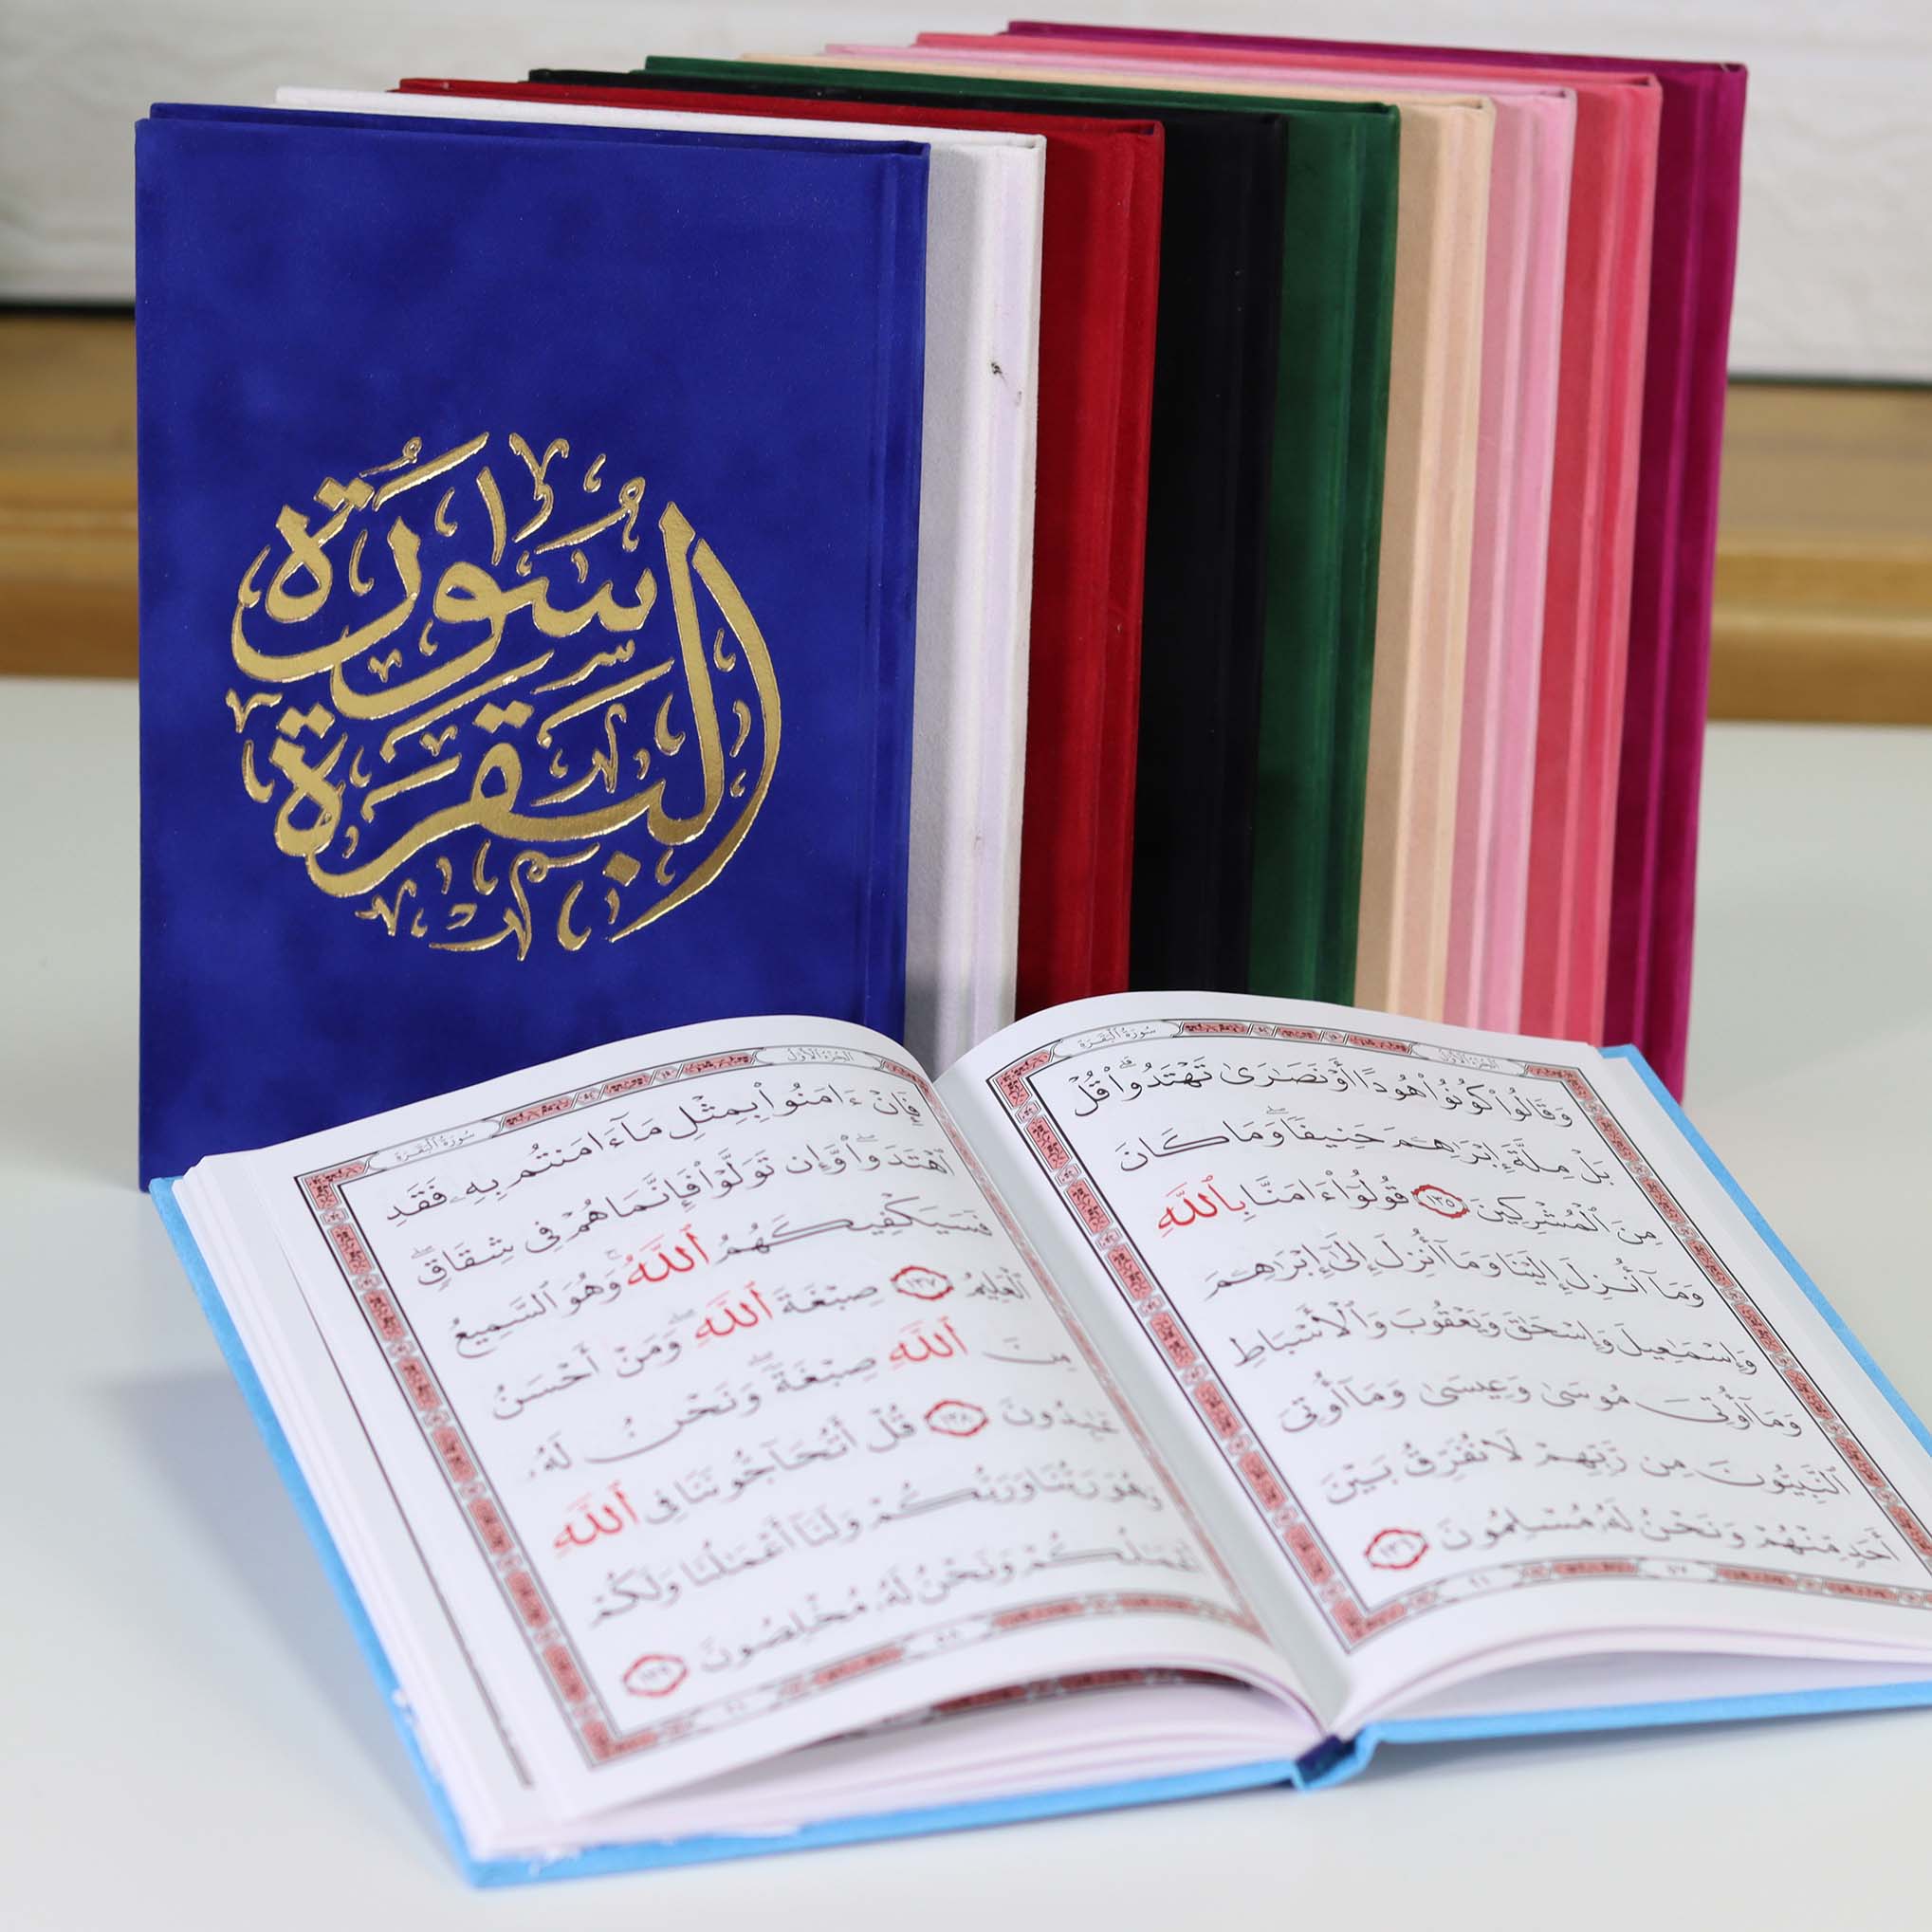 سُورَةُ
البَقَرَة
سُورَةُ الْبَقَرَةِ
الجُزْءُ الأَوَّلُ
وَقَالُوا۟ كُونُوا۟ هُودًا أَوْ نَصَٰرَىٰ تَهْتَدُوا۟ ۗ قُلْ
بَلْ مِلَّةَ إِبْرَٰهِـۧمَ حَنِيفًا ۖ وَمَا كَانَ
مِنَ ٱلْمُشْرِكِينَ ١٣٥ قُولُوٓا۟ ءَامَنَّا بِٱللَّهِ
وَمَآ أُنزِلَ إِلَيْنَا وَمَآ أُنزِلَ إِلَىٰٓ إِبْرَٰهِـۧمَ
وَإِسْمَٰعِيلَ وَإِسْحَٰقَ وَيَعْقُوبَ وَٱلْأَسْبَاطِ
وَمَآ أُوتِىَ مُوسَىٰ وَعِيسَىٰ وَمَآ أُوتِىَ
ٱلنَّبِيُّونَ مِن رَّبِّهِمْ لَا نُفَرِّقُ بَيْنَ
أَحَدٍ مِّنْهُمْ وَنَحْنُ لَهُۥ مُسْلِمُونَ ١٣٦
سُورَةُ الْبَقَرَةِ
الجُزْءُ الأَوَّلُ
فَإِنْ ءَامَنُوا۟ بِمِثْلِ مَآ ءَامَنتُم بِهِۦ فَقَدِ
ٱهْتَدَوا۟ ۖ وَّإِن تَوَلَّوْا۟ فَإِنَّمَا هُمْ فِى شِقَاقٍ ۖ
فَسَيَكْفِيكَهُمُ ٱللَّهُ ۚ وَهُوَ ٱلسَّمِيعُ
ٱلْعَلِيمُ ١٣٧ صِبْغَةَ ٱللَّهِ ۖ وَمَنْ أَحْسَنُ
مِنَ ٱللَّهِ صِبْغَةً ۖ وَنَحْنُ لَهُۥ
عَٰبِدُونَ ١٣٨ قُلْ أَتُحَآجُّونَنَا فِى ٱللَّهِ
وَهُوَ رَبُّنَا وَرَبُّكُمْ وَلَنَآ أَعْمَٰلُنَا وَلَكُمْ
أَعْمَٰلُكُمْ وَنَحْنُ لَهُۥ مُخْلِصُونَ ١٣٩